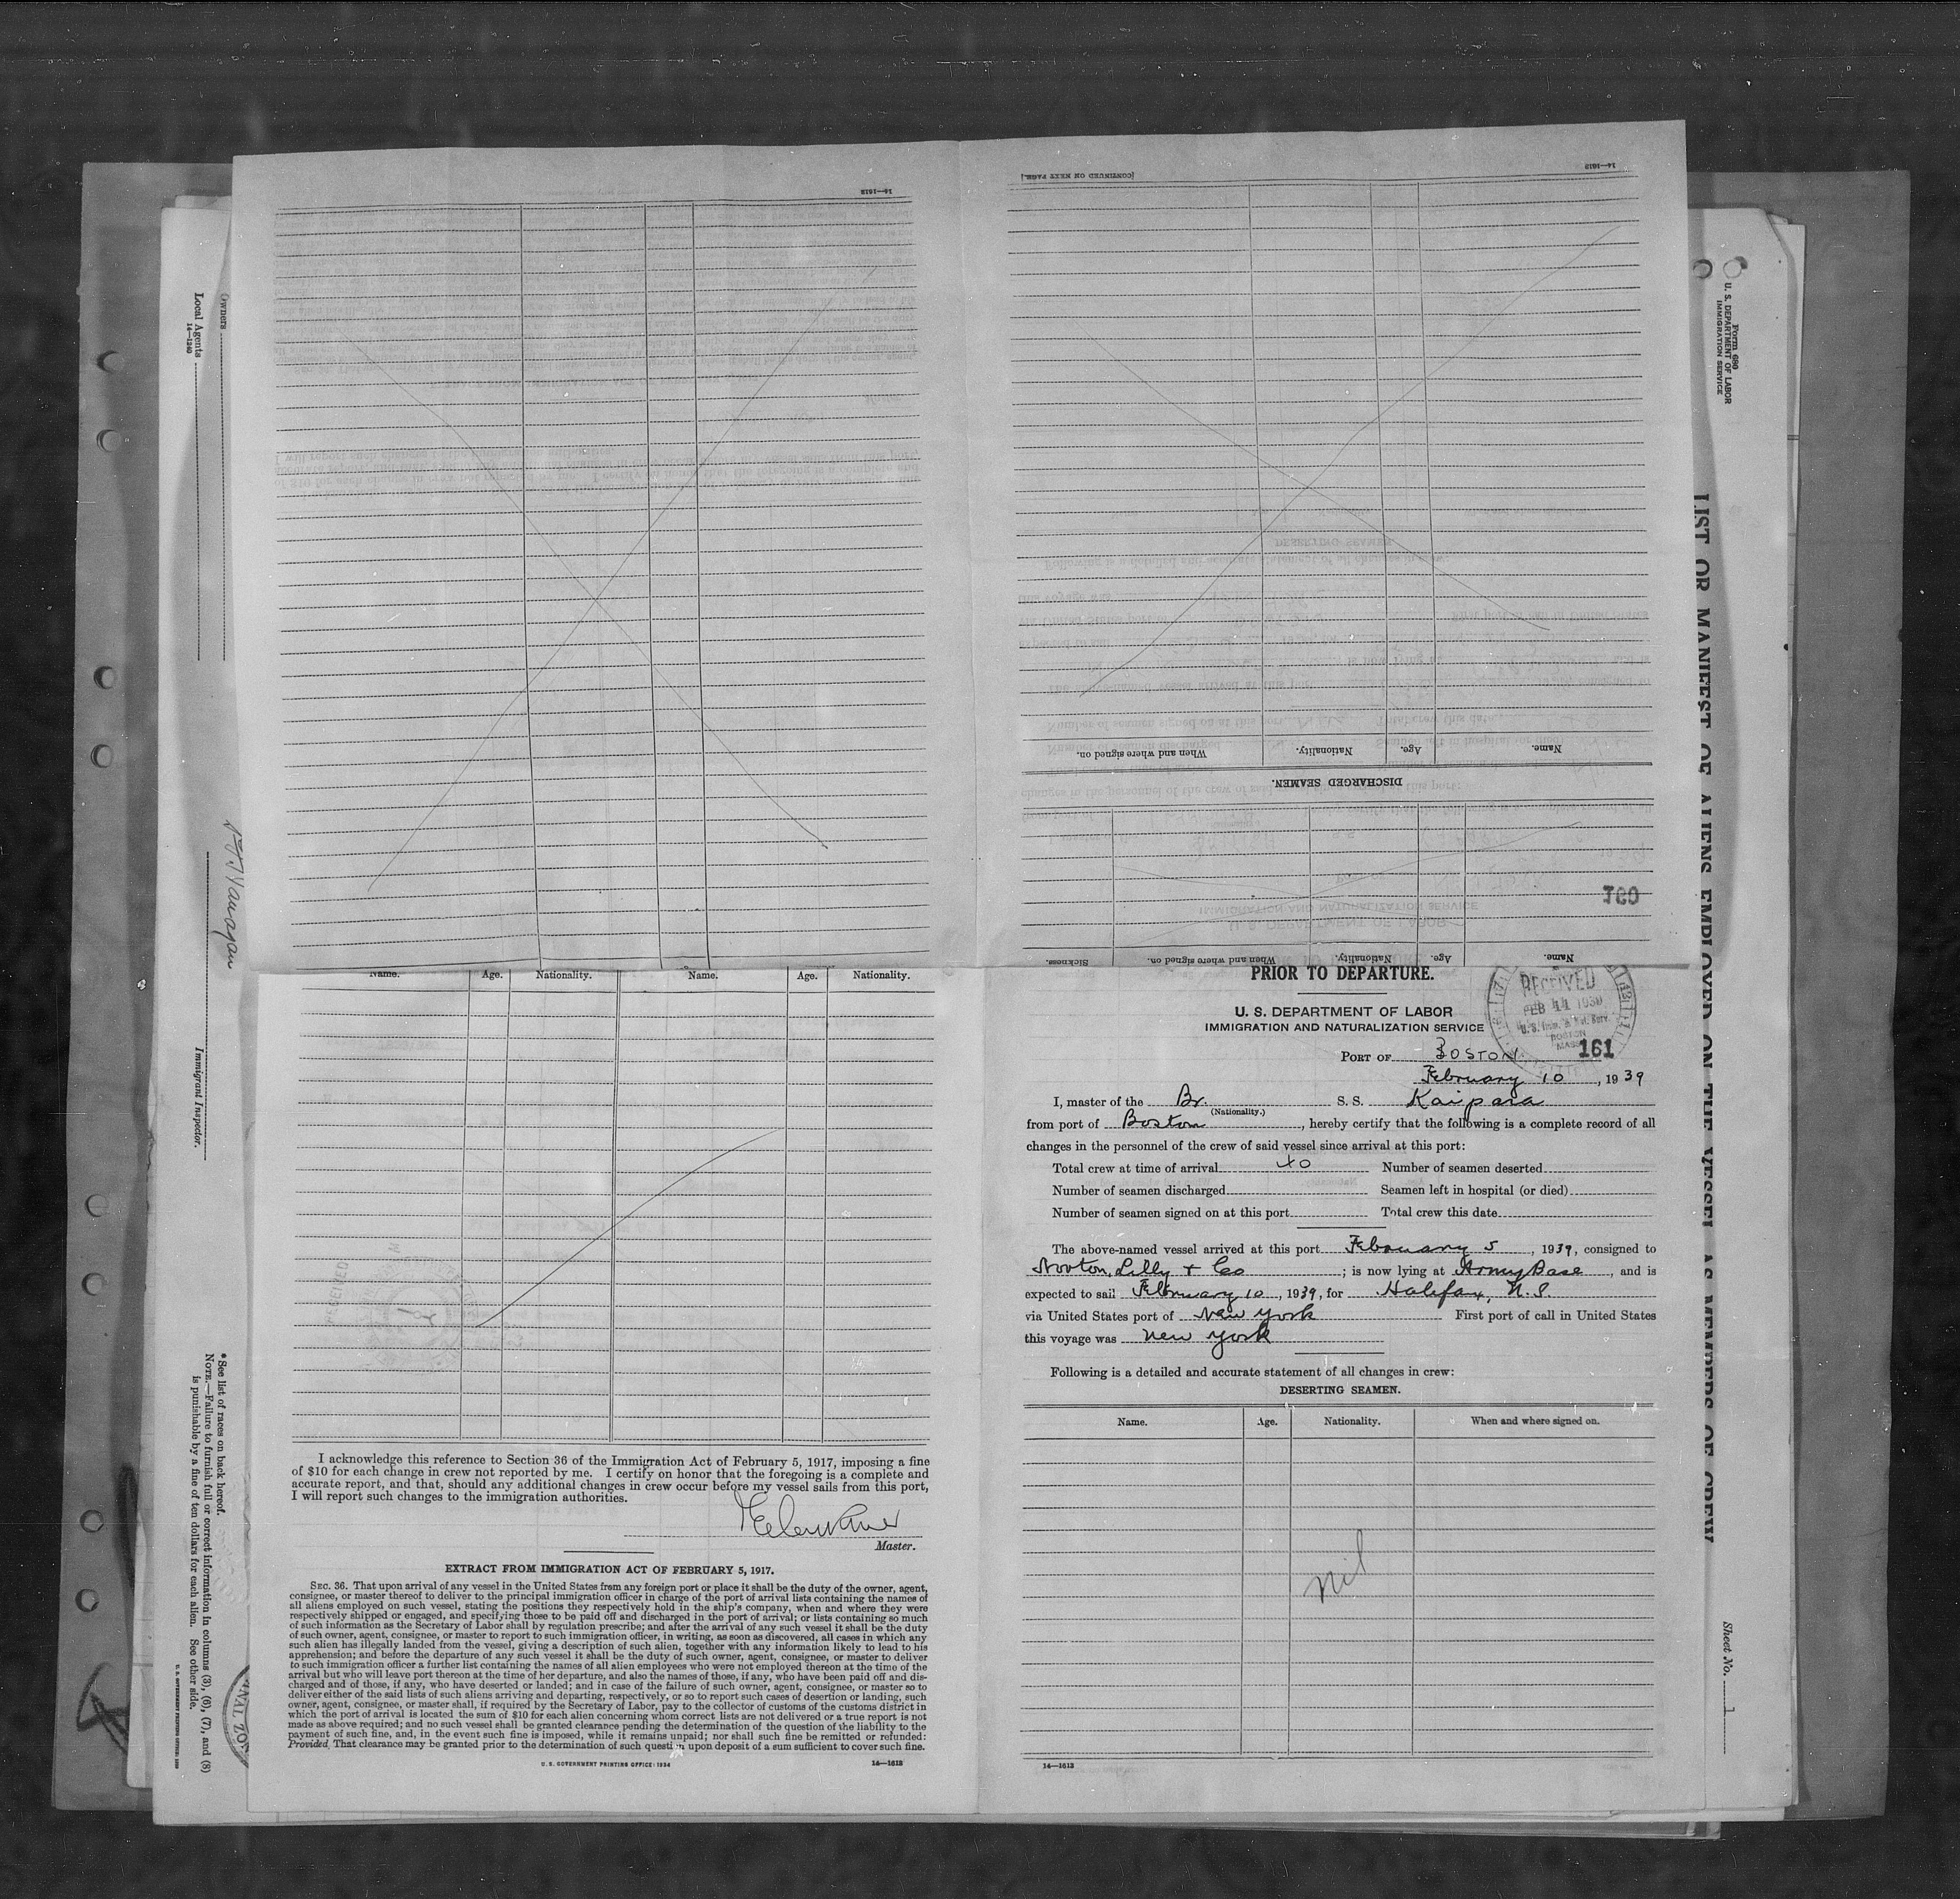 14—1612
[CONTINUED ON NEXT PAGE.]
14—1612
DISCHARGED SEAMEN.
Name.
Age.
Nationality.
When and where signed on.
Name.
Age.
Nationality.
When and where signed on.
Sickness.
Owners
Local Agents
14—1240
Immigrant Inspector.
* See list of races on back hereof.
NOTE.—Failure to furnish full or correct information in columns (3), (6), (7), and (8)
is punishable by a fine of ten dollars for each alien. See other side.
Name. Age. Nationality. Name. Age. Nationality.
I acknowledge this reference to Section 36 of the Immigration Act of February 5, 1917, imposing a fine
of $10 for each change in crew not reported by me. I certify on honor that the foregoing is a complete and
accurate report, and that, should any additional changes in crew occur before my vessel sails from this port,
I will report such changes to the immigration authorities.
Master.
EXTRACT FROM IMMIGRATION ACT OF FEBRUARY 5, 1917.
SEC. 36. That upon arrival of any vessel in the United States from any foreign port or place it shall be the duty of the owner, agent,
consignee, or master thereof to deliver to the principal immigration officer in charge of the port of arrival lists containing the names of
all aliens employed on such vessel, stating the positions they respectively hold in the ship's company, when and where they were
respectively shipped or engaged, and specifying those to be paid off and discharged in the port of arrival; or lists containing so much
of such information as the Secretary of Labor shall by regulation prescribe; and after the arrival of any such vessel it shall be the duty
of such owner, agent, consignee, or master to report to such immigration officer, in writing, as soon as discovered, all cases in which any
such alien has illegally landed from the vessel, giving a description of such alien, together with any information likely to lead to his
apprehension; and before the departure of any such vessel it shall be the duty of such owner, agent, consignee, or master to deliver
to such immigration officer a further list containing the names of all alien employees who were not employed thereon at the time of the
arrival but who will leave port thereon at the time of her departure, and also the names of those, if any, who have been paid off and dis-
charged and of those, if any, who have deserted or landed; and in case of the failure of such owner, agent, consignee, or master so to
deliver either of the said lists of such aliens arriving and departing, respectively, or so to report such cases of desertion or landing, such
owner, agent, consignee, or master shall, if required by the Secretary of Labor, pay to the collector of customs of the customs district in
which the port of arrival is located the sum of $10 for each alien concerning whom correct lists are not delivered or a true report is not
made as above required; and no such vessel shall be granted clearance pending the determination of the question of the liability to the
payment of such fine, and, in the event such fine is imposed, while it remains unpaid; nor shall such fine be remitted or refunded:
Provided, That clearance may be granted prior to the determination of such question upon deposit of a sum sufficient to cover such fine.
U. S. GOVERNMENT PRINTING OFFICE: 1934 14—1612
PRIOR TO DEPARTURE.
U. S. DEPARTMENT OF LABOR
IMMIGRATION AND NATURALIZATION SERVICE
RECEIVED
FEB 11 1939
BOSTON
MASS
161
PORT OF BOSTON
February 10, 1939
I, master of the Br. S. S. Kaipara
(Nationality.)
from port of Boston, hereby certify that the following is a complete record of all
changes in the personnel of the crew of said vessel since arrival at this port:
Total crew at time of arrival 40 Number of seamen deserted
Number of seamen discharged Seamen left in hospital (or died)
Number of seamen signed on at this port Total crew this date
The above-named vessel arrived at this port February 5, 1939, consigned to
Norton, Lilly & Co; is now lying at Army Base, and is
expected to sail February 10, 1939, for Halifax, N.S.
via United States port of New York First port of call in United States
this voyage was New York
Following is a detailed and accurate statement of all changes in crew:
DESERTING SEAMEN.
Name. Age. Nationality. When and where signed on.
nil
14—1612
Form 680
U. S. DEPARTMENT OF LABOR
IMMIGRATION SERVICE
LIST OR MANIFEST OF ALIENS EMPLOYED ON THE VESSEL AS MEMBERS OF CREW
Sheet No. 1